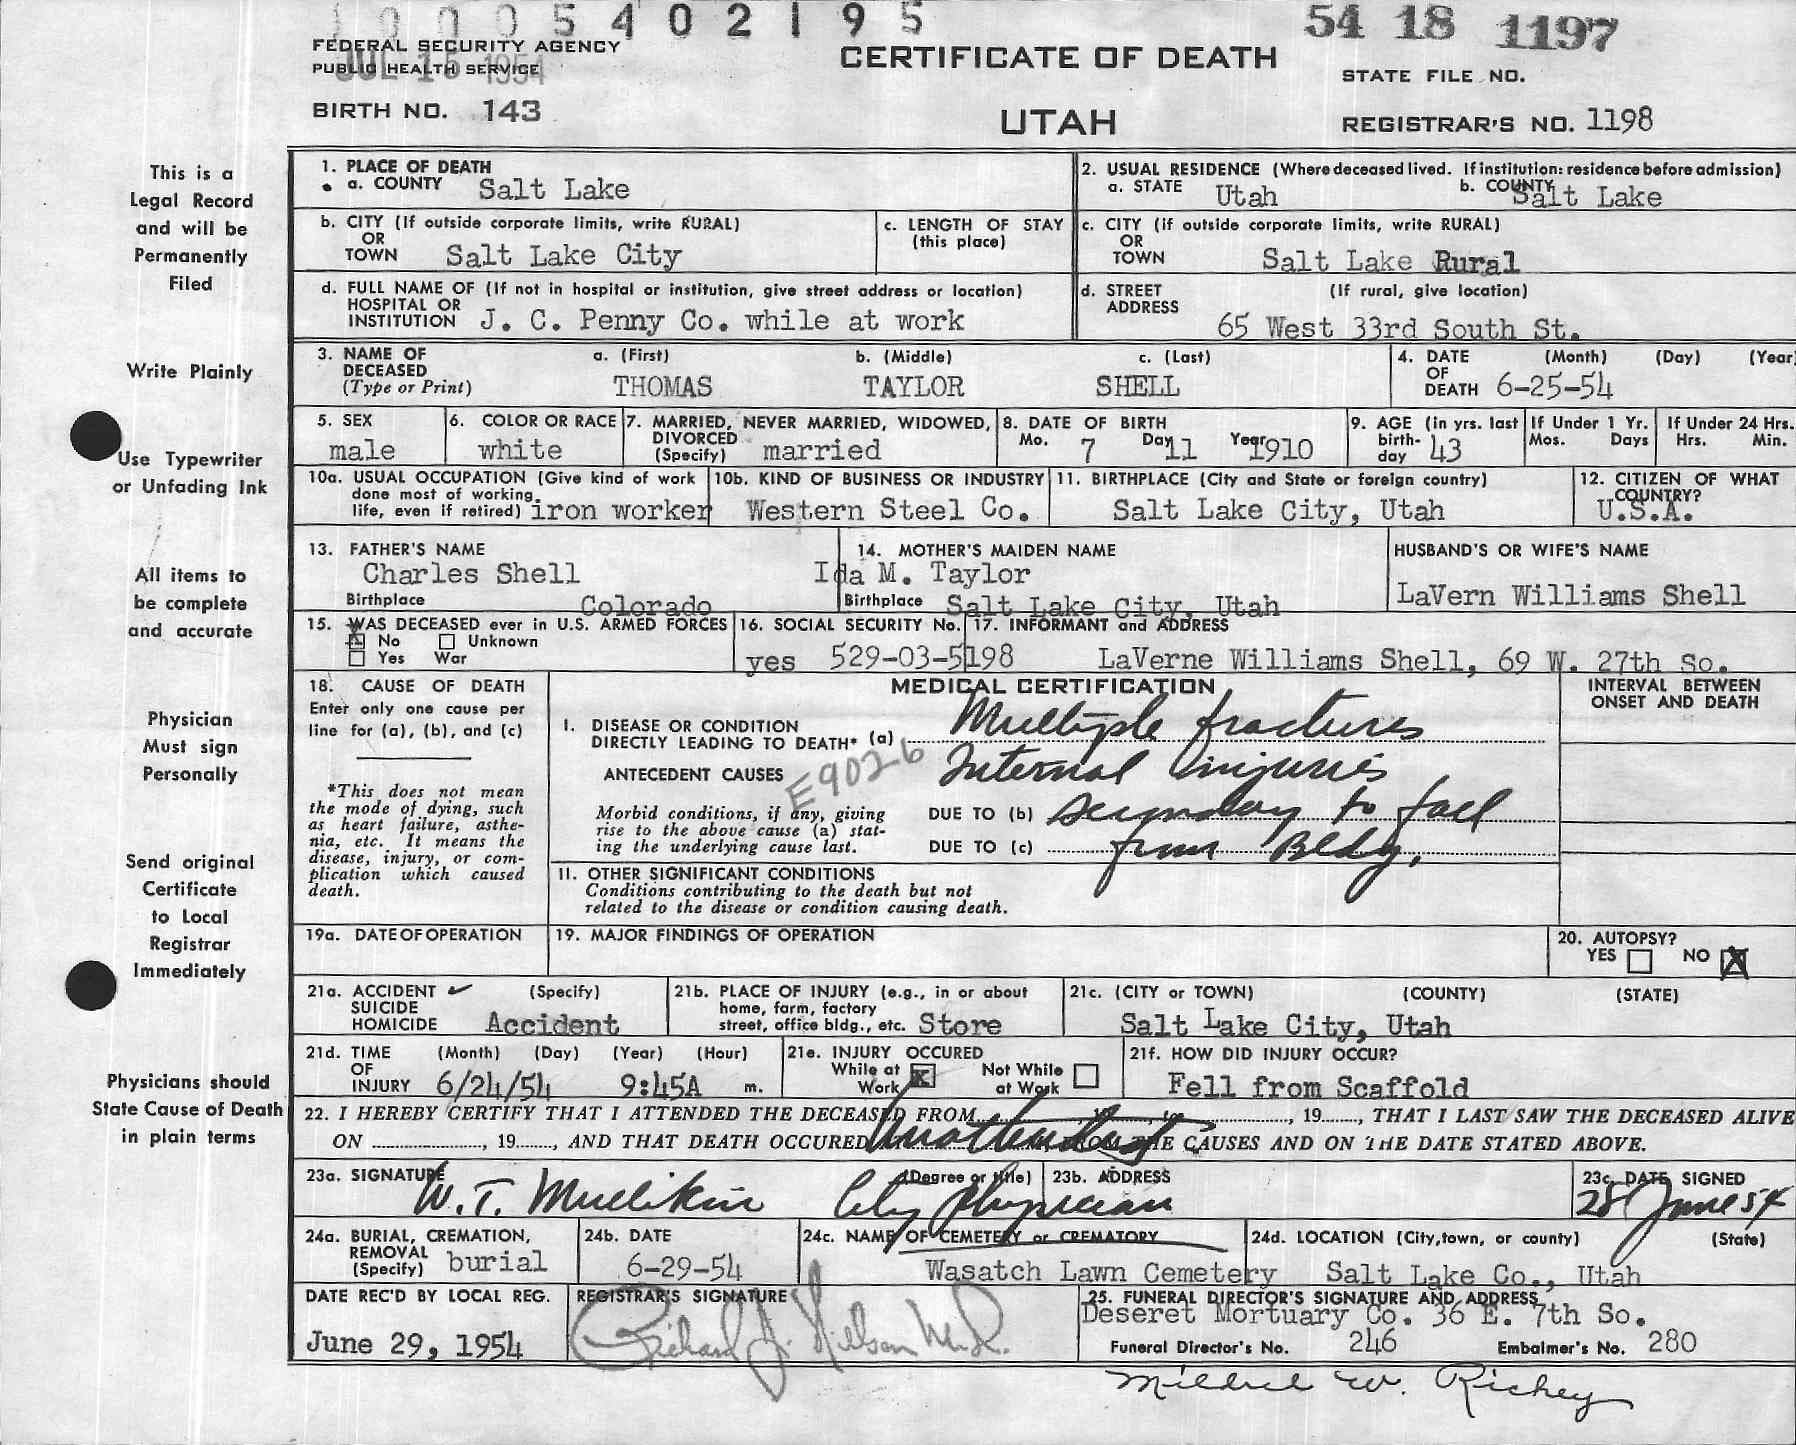 1 0 0 0 5 4 0 2 1 9 5
54 18 1197
FEDERAL SECURITY AGENCY
PUBLIC HEALTH SERVICE
JUL 15 1954
CERTIFICATE OF DEATH
STATE FILE NO.
BIRTH NO. 143
UTAH
REGISTRAR'S NO. 1198
This is a
Legal Record
and will be
Permanently
Filed
Write Plainly
Use Typewriter
or Unfading Ink
All items to
be complete
and accurate
Physician
Must sign
Personally
Send original
Certificate
to Local
Registrar
Immediately
Physicians should
State Cause of Death
in plain terms
1. PLACE OF DEATH
a. COUNTY Salt Lake
2. USUAL RESIDENCE (Where deceased lived. If institution: residence before admission)
a. STATE Utah b. COUNTY Salt Lake
b. CITY (If outside corporate limits, write RURAL)
OR
TOWN Salt Lake City
c. LENGTH OF STAY
(this place)
c. CITY (if outside corporate limits, write RURAL)
OR
TOWN Salt Lake Rural
d. FULL NAME OF (If not in hospital or institution, give street address or location)
HOSPITAL OR
INSTITUTION J. C. Penny Co. while at work
d. STREET (If rural, give location)
ADDRESS
65 West 33rd South St.
3. NAME OF a. (First) b. (Middle) c. (Last)
DECEASED
(Type or Print) THOMAS TAYLOR SHELL
4. DATE (Month) (Day) (Year)
OF
DEATH 6-25-54
5. SEX
male
6. COLOR OR RACE
white
7. MARRIED, NEVER MARRIED, WIDOWED,
DIVORCED
(Specify) married
8. DATE OF BIRTH
Mo. 7 Day 11 Year 1910
9. AGE (in yrs. last
birth-
day 43
If Under 1 Yr.
Mos. Days
If Under 24 Hrs.
Hrs. Min.
10a. USUAL OCCUPATION (Give kind of work
done most of working
life, even if retired) iron worker
10b. KIND OF BUSINESS OR INDUSTRY
Western Steel Co.
11. BIRTHPLACE (City and State or foreign country)
Salt Lake City, Utah
12. CITIZEN OF WHAT
COUNTRY?
U.S.A.
13. FATHER'S NAME
Charles Shell
Birthplace Colorado
14. MOTHER'S MAIDEN NAME
Ida M. Taylor
Birthplace Salt Lake City, Utah
HUSBAND'S OR WIFE'S NAME
LaVern Williams Shell
15. WAS DECEASED ever in U.S. ARMED FORCES
X No Unknown
Yes War
16. SOCIAL SECURITY No.
yes 529-03-5198
17. INFORMANT and ADDRESS
LaVerne Williams Shell, 69 W. 27th So.
18. CAUSE OF DEATH
Enter only one cause per
line for (a), (b), and (c)
*This does not mean
the mode of dying, such
as heart failure, asthe-
nia, etc. It means the
disease, injury, or com-
plication which caused
death.
MEDICAL CERTIFICATION
I. DISEASE OR CONDITION
DIRECTLY LEADING TO DEATH* (a) Multiple fractures
ANTECEDENT CAUSES E9026 Internal injuries
Morbid conditions, if any, giving
rise to the above cause (a) stat-
ing the underlying cause last.
DUE TO (b) secondary to fall
DUE TO (c) from Bldg.
11. OTHER SIGNIFICANT CONDITIONS
Conditions contributing to the death but not
related to the disease or condition causing death.
INTERVAL BETWEEN
ONSET AND DEATH
19a. DATE OF OPERATION
19. MAJOR FINDINGS OF OPERATION
20. AUTOPSY?
YES NO X
21a. ACCIDENT ✓ (Specify)
SUICIDE
HOMICIDE Accident
21b. PLACE OF INJURY (e.g., in or about
home, farm, factory
street, office bldg., etc. Store
21c. (CITY or TOWN) (COUNTY) (STATE)
Salt Lake City, Utah
21d. TIME (Month) (Day) (Year) (Hour)
OF
INJURY 6/24/54 9:45A m.
21e. INJURY OCCURED
While at Work X Not While at Work
21f. HOW DID INJURY OCCUR?
Fell from Scaffold
22. I HEREBY CERTIFY THAT I ATTENDED THE DECEASED FROM , 19 , THAT I LAST SAW THE DECEASED ALIVE
ON , 19 , AND THAT DEATH OCCURED FROM THE CAUSES AND ON THE DATE STATED ABOVE.
23a. SIGNATURE (Degree or title)
W. T. Muellikin City Physician
23b. ADDRESS
23c. DATE SIGNED
28 June 54
24a. BURIAL, CREMATION,
REMOVAL
(Specify) burial
24b. DATE
6-29-54
24c. NAME OF CEMETERY or CREMATORY
Wasatch Lawn Cemetery
24d. LOCATION (City, town, or county) (State)
Salt Lake Co., Utah
DATE REC'D BY LOCAL REG.
June 29, 1954
REGISTRAR'S SIGNATURE
Richard J. Nielson M.D.
25. FUNERAL DIRECTOR'S SIGNATURE AND ADDRESS
Deseret Mortuary Co. 36 E. 7th So.
Funeral Director's No. 246 Embalmer's No. 280
Mildred W. Richey